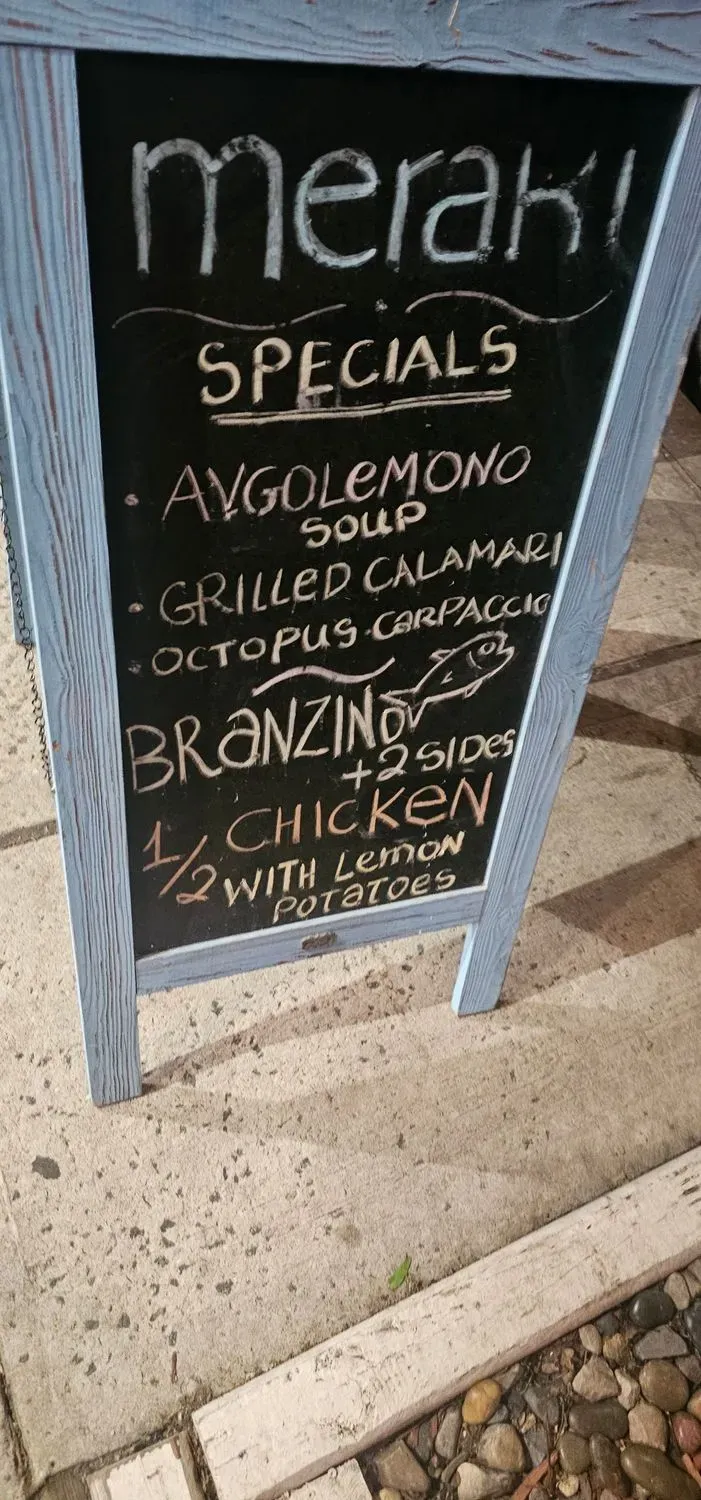 meraki
SPECIALS
• AVGOLeMONO
SOUP
• GRILLeD CALAMARI
• OCTOPUS CARPACCIO
BRANZINO
+2 SIDes
1/2 CHICKeN
WITH LemON
POTATOES